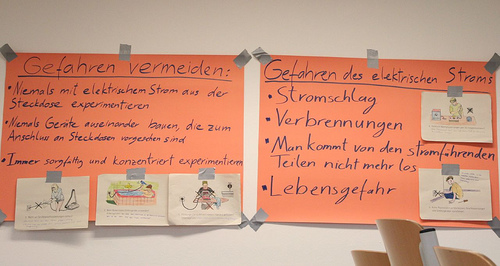 Gefahren vermeiden:
• Niemals mit elektrischem Strom aus der
Steckdose experimentieren
• Niemals Geräte auseinander bauen, die zum
Anschluss an Steckdosen vorgesehen sind
• Immer sorgfältig und konzentriert experimentieren
Gefahren des elektrischen Stroms
• Stromschlag
• Verbrennungen
• Man kommt von den stromführenden
Teilen nicht mehr los
• Lebensgefahr